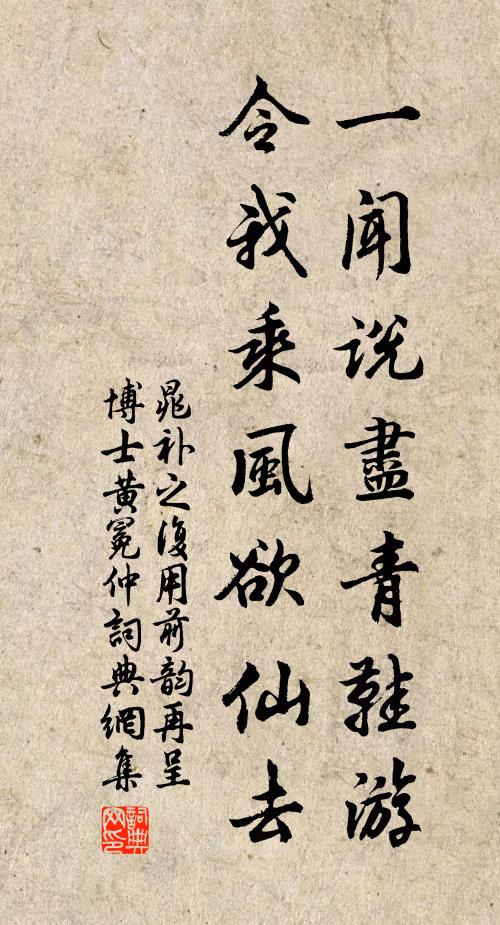 一聞説盡青鞋游
令我乘風欲仙去
晁补之復用前韵再呈
博士黄冕仲詞典網集
詞典网印